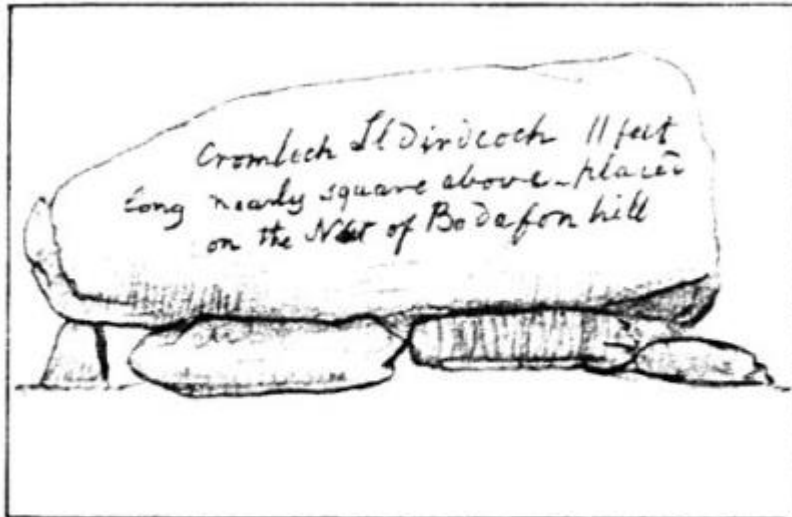 Cromlech Ll Dirdcoch 11 feet
long nearly square above - placed
on the of Bodafon hill